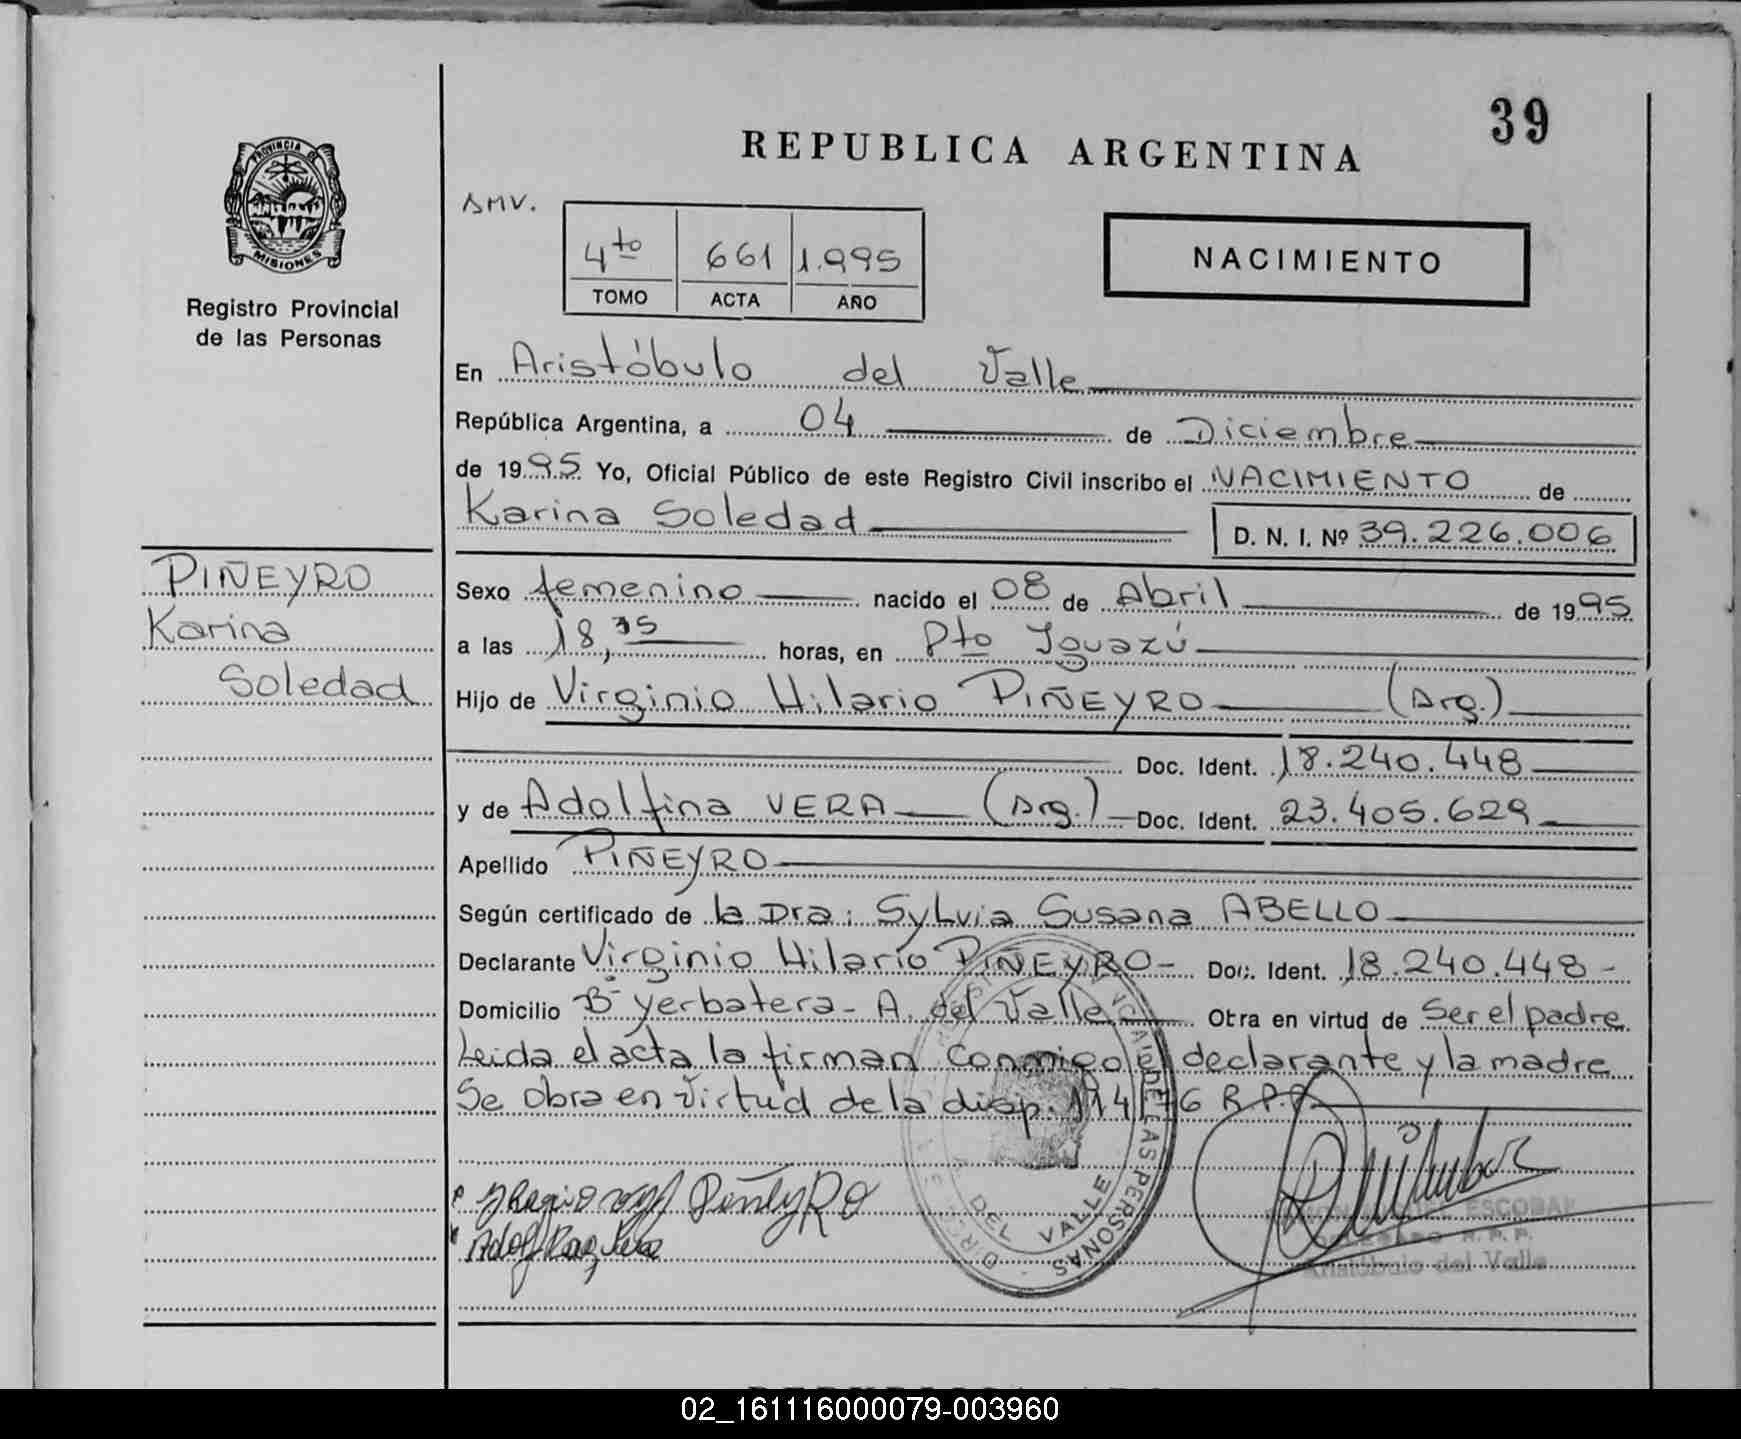 39
REPUBLICA ARGENTINA
PROVINCIA DE
MISIONES
Registro Provincial
de las Personas
AMV.
4to 661 1.995
TOMO ACTA AÑO
NACIMIENTO
En Aristóbulo del Valle
República Argentina, a 04 de Diciembre
de 1995 Yo, Oficial Público de este Registro Civil inscribo el NACIMIENTO de
Karina Soledad D. N. I. Nº 39.226.006
PIÑEYRO
Karina
Soledad
Sexo femenino nacido el 08 de Abril de 1995
a las 18,35 horas, en Pto Iguazú
Hijo de Virginio Hilario PIÑEYRO (Arg.)
Doc. Ident. 18.240.448
y de Adolfina VERA (Arg.) Doc. Ident. 23.405.629
Apellido PIÑEYRO
Según certificado de la Dra: Sylvia Susana ABELLO
Declarante Virginio Hilario PIÑEYRO- Doc. Ident. 18.240.448-
Domicilio Bº Yerbatera- A. del Valle Obra en virtud de Ser el padre
Leida el acta la firman conmigo el declarante y la madre
Se obra en virtud de la disp. 114/76 R.P.P.
PIÑEYRO
DEL VALLE
DE LAS PERSONAS
ESCOBAR
DELEGADO R.P.P.
Aristóbulo del Valle
02_161116000079-003960